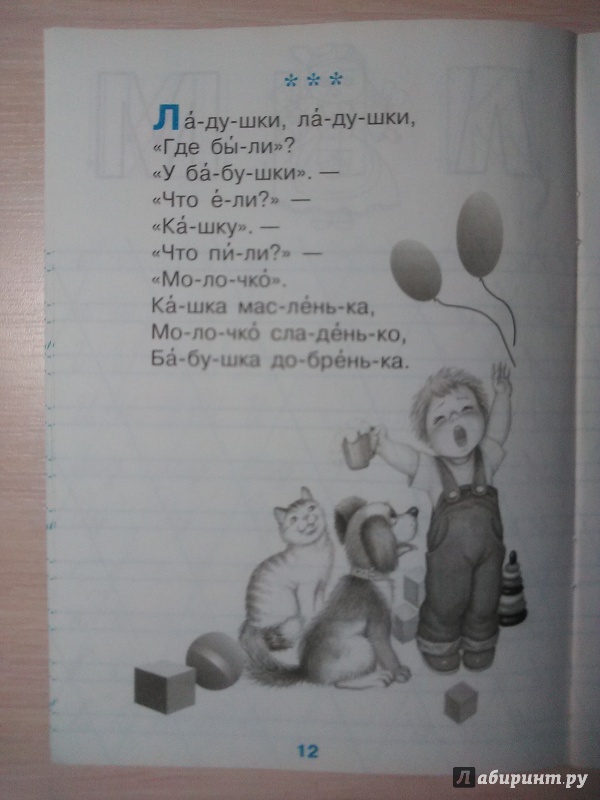 ***
Ла́-ду-шки, ла́-ду-шки,
«Где бы́-ли»?
«У ба́-бу-шки». —
«Что е́-ли?» —
«Ка́-шку». —
«Что пи́-ли?» —
«Мо-ло-чко́».
Ка́-шка мас-ле́нь-ка,
Мо-ло-чко́ сла-де́нь-ко,
Ба́-бу-шка до-бре́нь-ка.
12
Лабиринт.ру